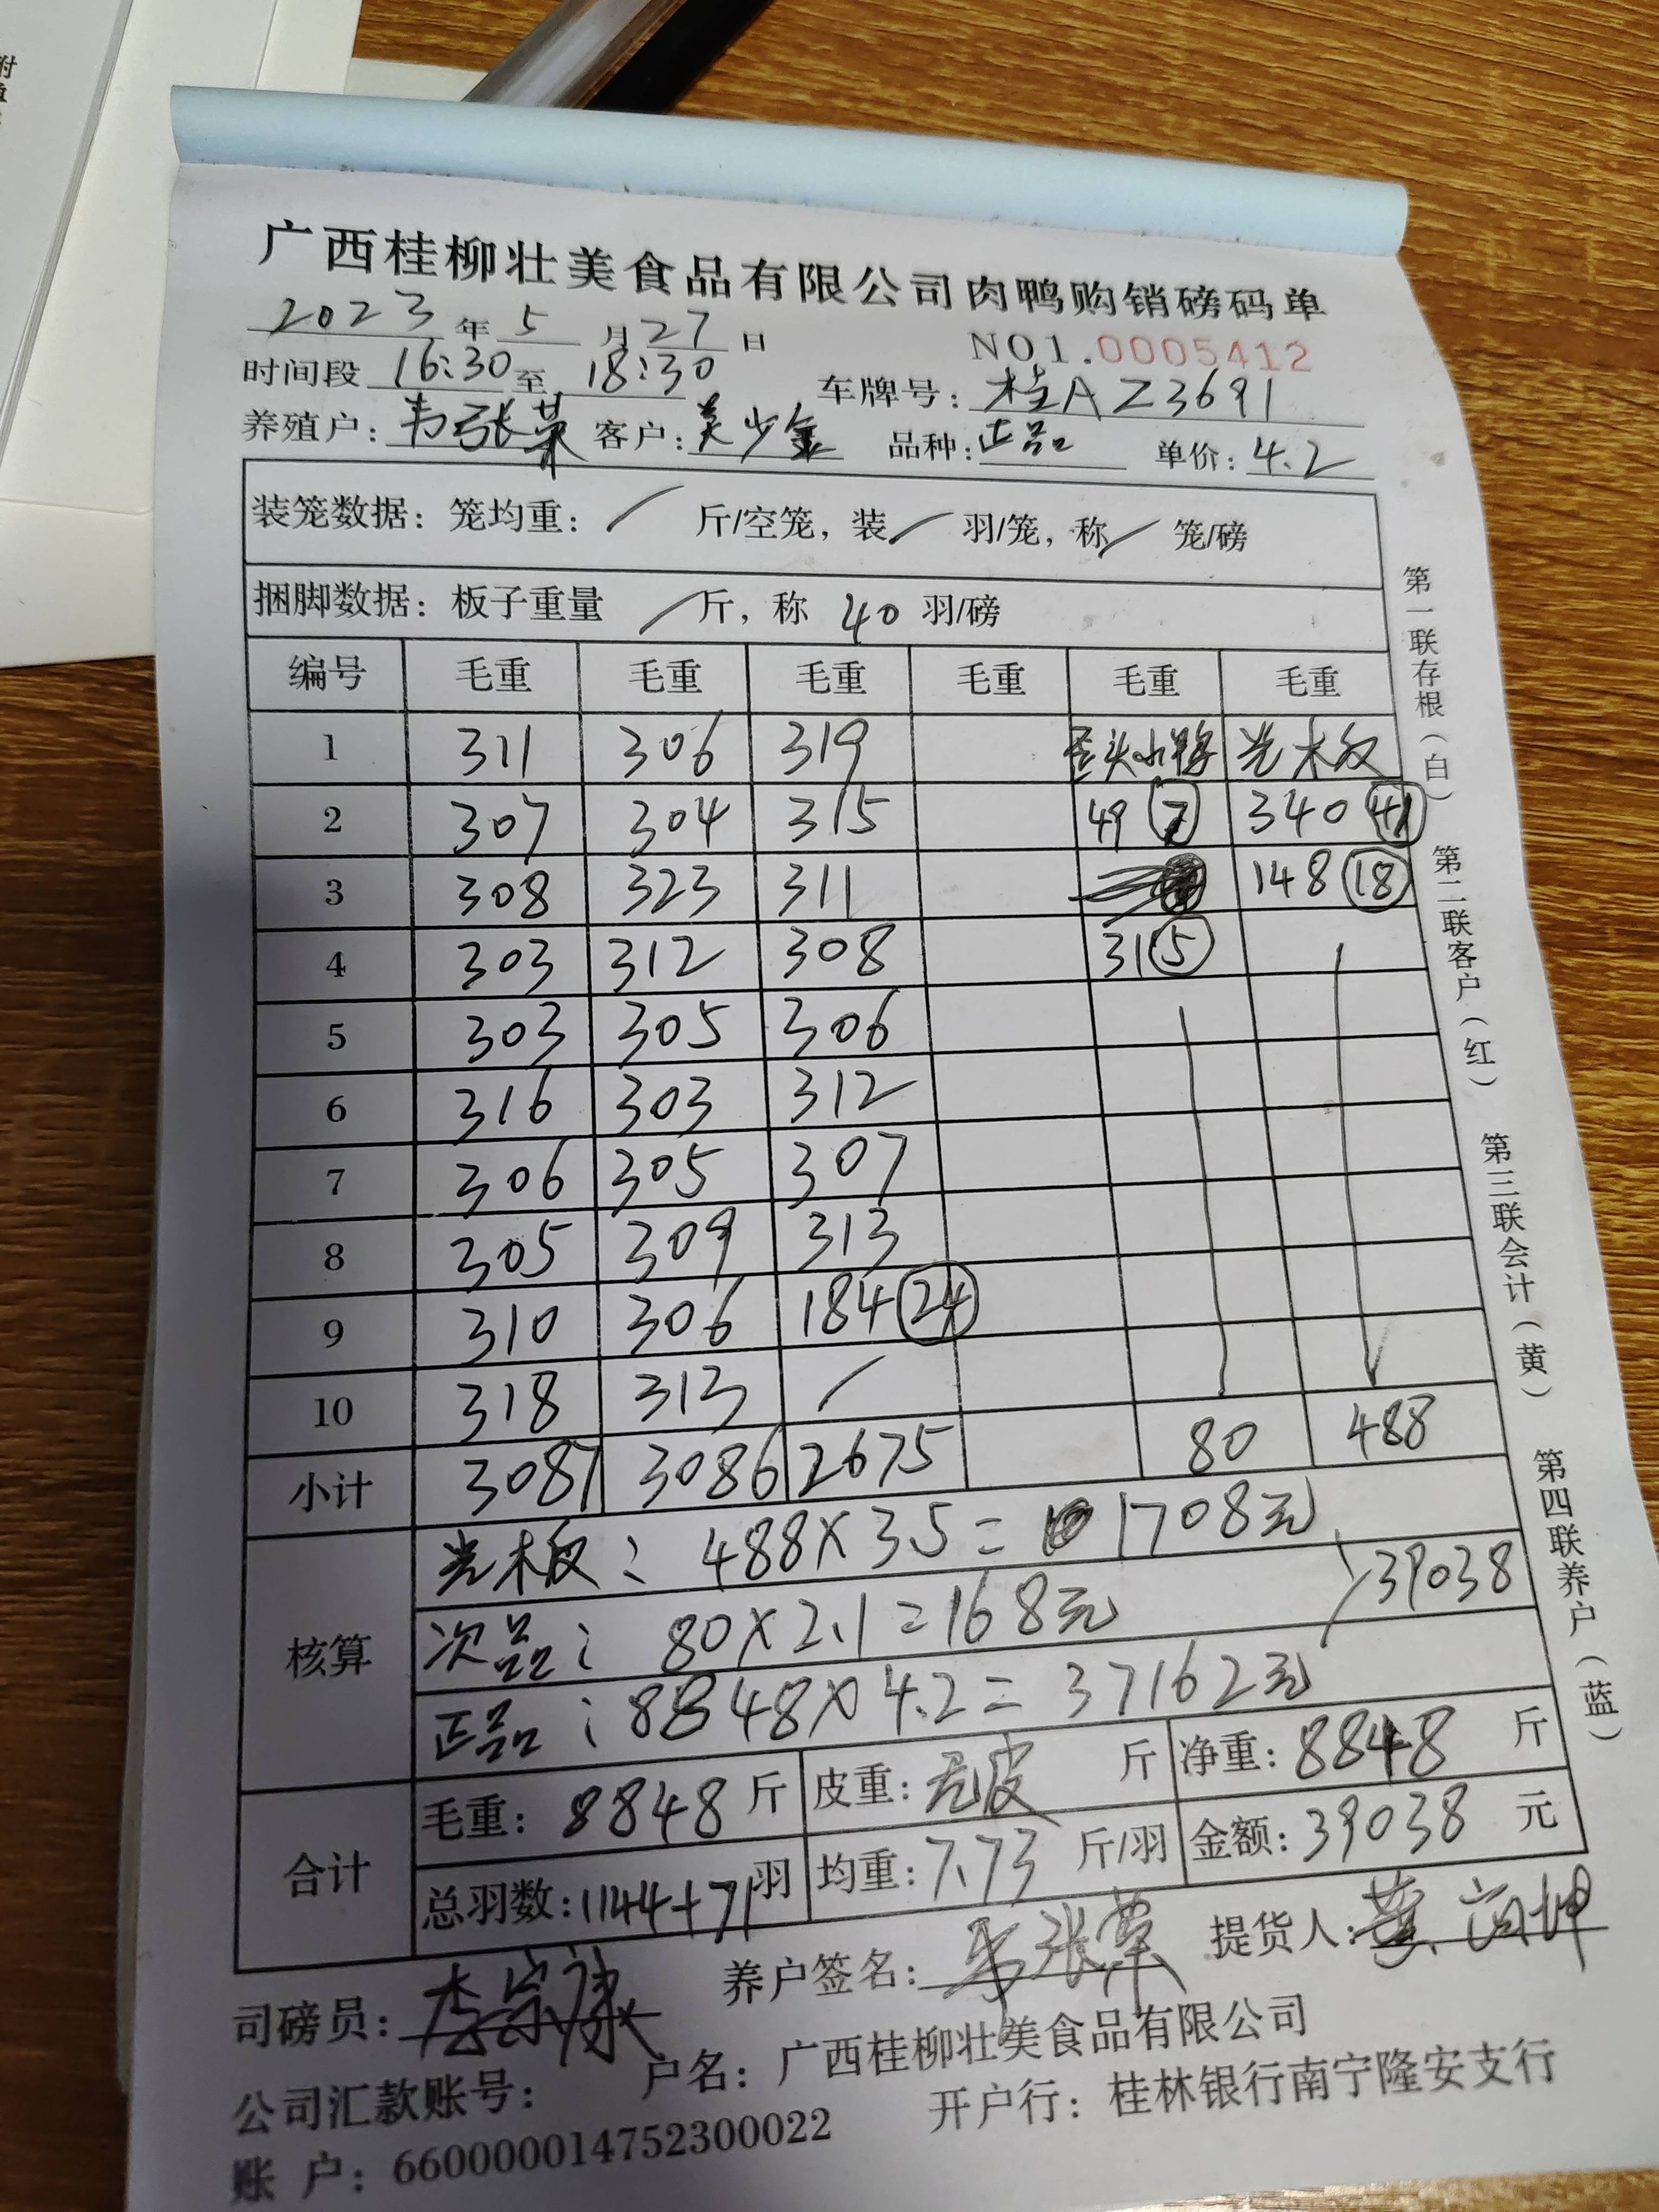 广西桂柳壮美食品有限公司肉鸭购销磅码单
2023年5月27日 NO1.0005412
时间段 16:30至 18:30 车牌号: 桂A Z3691
养殖户: 韦张荣 客户: 少金 品种: 正品 单价: 4.2
装笼数据: 笼均重: / 斤/空笼, 装 / 羽/笼, 称 / 笼/磅
捆脚数据: 板子重量 / 斤, 称 40 羽/磅
编号 毛重 毛重 毛重 毛重 毛重 毛重
1 311 306 319 歪头小鸭 光木板
2 307 304 315 49 7 340 41
3 308 323 311 148 18
4 303 312 308 31 5
5 303 305 306
6 316 303 312
7 306 305 307
8 305 309 313
9 310 306 184 24
10 318 313 /
小计 3087 3086 2675 80 488
核算
光木板: 488×3.5= 1708元
次品: 80×2.1=168元
39038
正品: 8848×4.2=37162元
合计
毛重: 8848 斤 皮重: 无皮 斤 净重: 8848 斤
总羽数: 1144+71羽 均重: 7.73 斤/羽 金额: 39038 元
司磅员: 李宗康 养户签名: 韦张荣 提货人:
公司汇款账号: 户名: 广西桂柳壮美食品有限公司
账 户: 660000014752300022 开户行: 桂林银行南宁隆安支行
第一联存根(白) 第二联客户(红) 第三联会计(黄) 第四联养户(蓝)
附